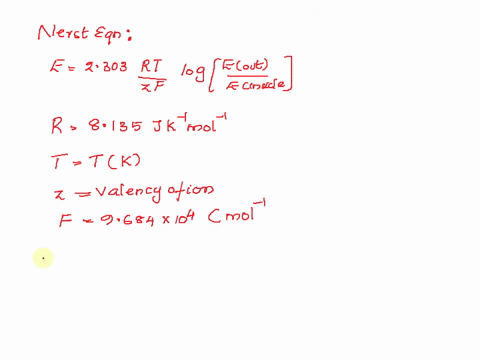 Nerst Eqn:
E = 2.303 RT/zF log [E(out)/E(inside)]
R = 8.135 JK⁻¹mol⁻¹
T = T(K)
z = valency of ion
F = 9.684 × 10⁴ C mol⁻¹